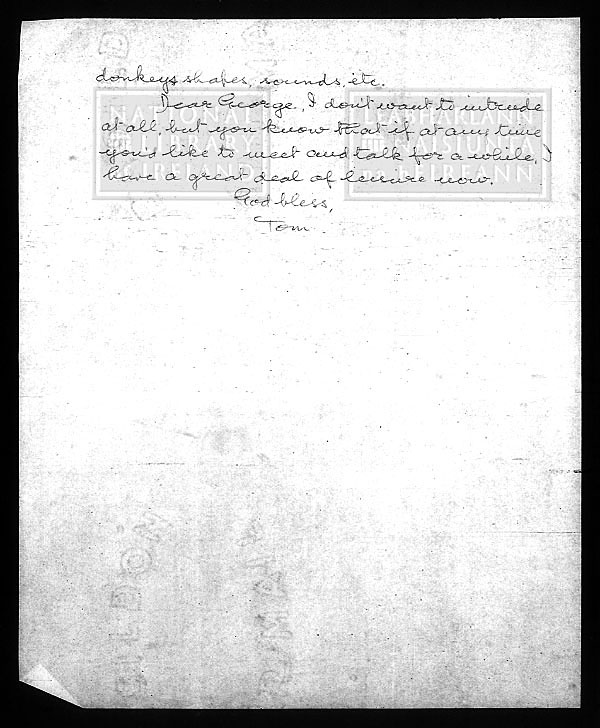 donkeys shapes, sounds, etc.
Dear George, I don't want to intrude
at all, but you know that if at any time
you'd like to meet and talk for a while, I
have a great deal of leisure now.
God bless,
Tom
NATIONAL
LIBRARY
OF IRELAND
LEABHARLANN
NÁISIÚNTA
NA hÉIREANN